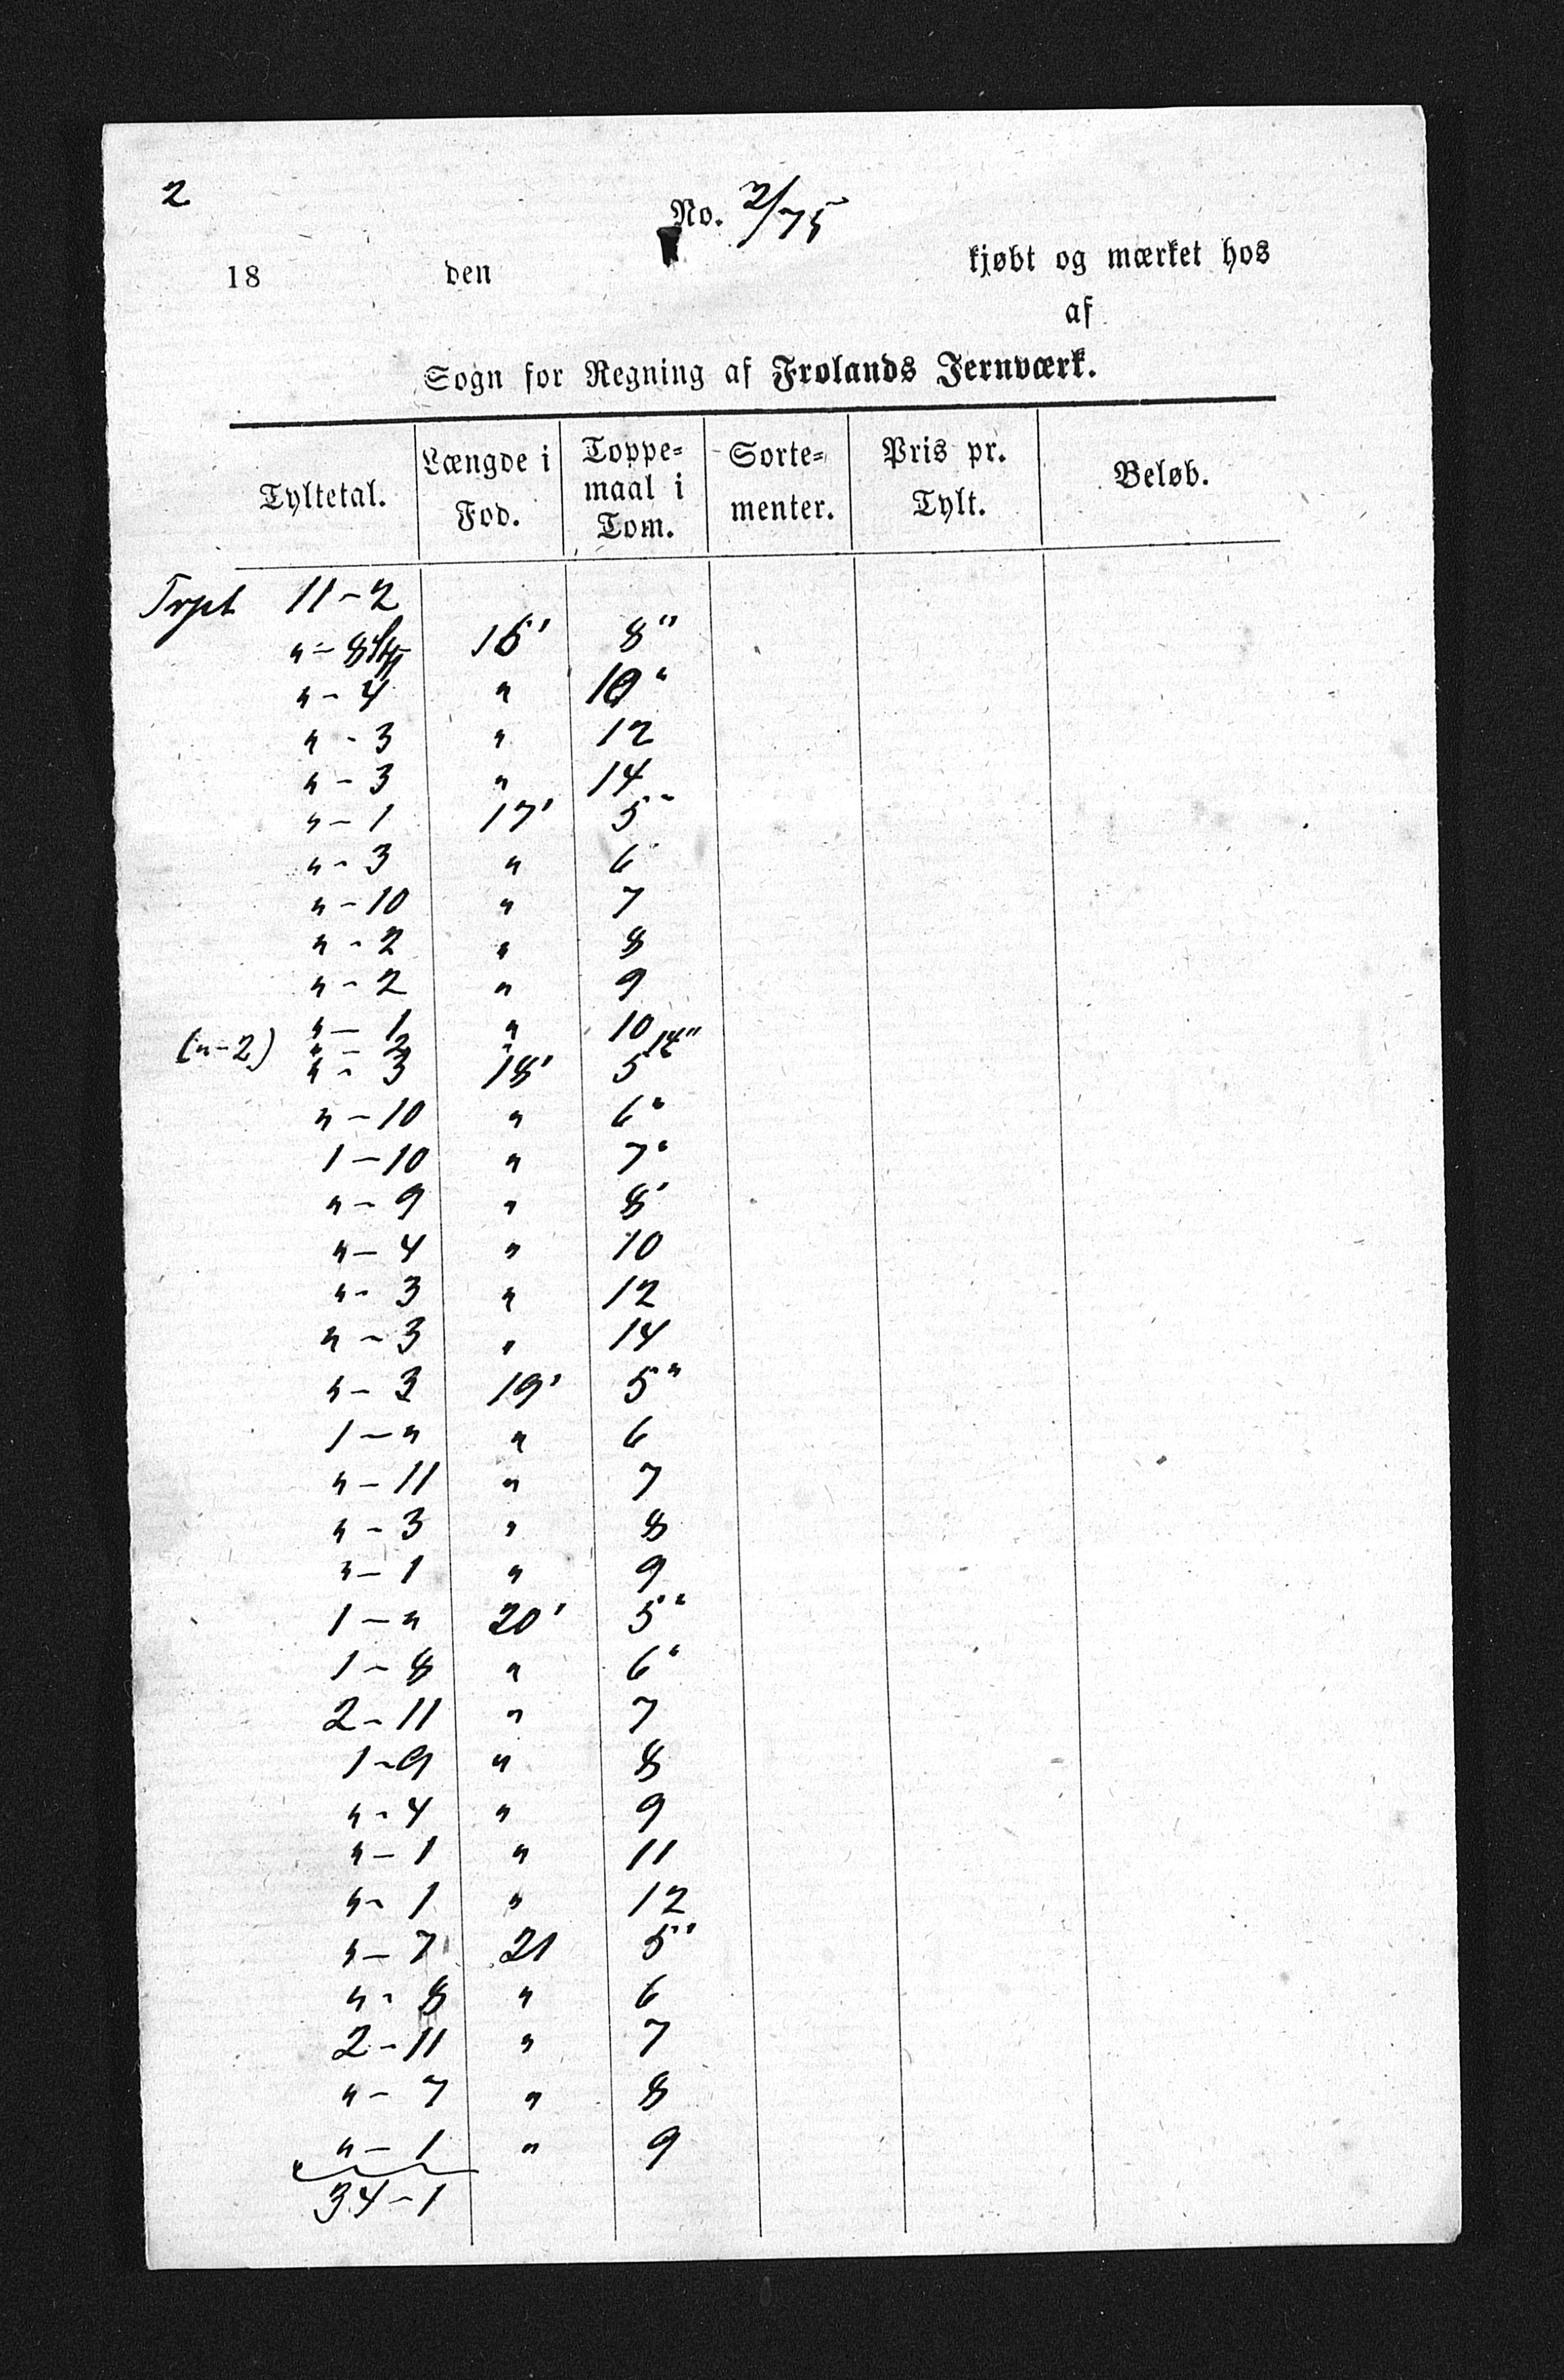 2
No. 2/75
18 den kjøbt og mærket hos
af
Sogn for Regning af Frolands Jernværk.
Tyltetal. Længde i Fod. Toppe-maal i Tom. Sorte-menter. Pris pr. Tylt. Beløb.
Trpt 11-2
" - 8 16' 8"
" - 4 " 10"
" - 3 " 12
" - 3 " 14
" - 1 17' 5"
" - 3 " 6
" - 10 " 7
" - 2 " 8
" - 2 " 9
" - 1 " 10
(" - 2) " - 2 " 14"
" - 3 18' 5"
" - 10 " 6"
1 - 10 " 7"
" - 9 " 8"
" - 4 " 10
" - 3 " 12
" - 3 " 14
" - 3 19' 5"
1 - " " 6
" - 11 " 7
" - 3 " 8
" - 1 " 9
1 - " 20' 5"
1 - 8 " 6"
2 - 11 " 7
1 - 9 " 8
" - 4 " 9
" - 1 " 11
" - 1 " 12
" - 7 21 5"
" - 8 " 6
2 - 11 " 7
" - 7 " 8
" - 1 " 9
34 - 1